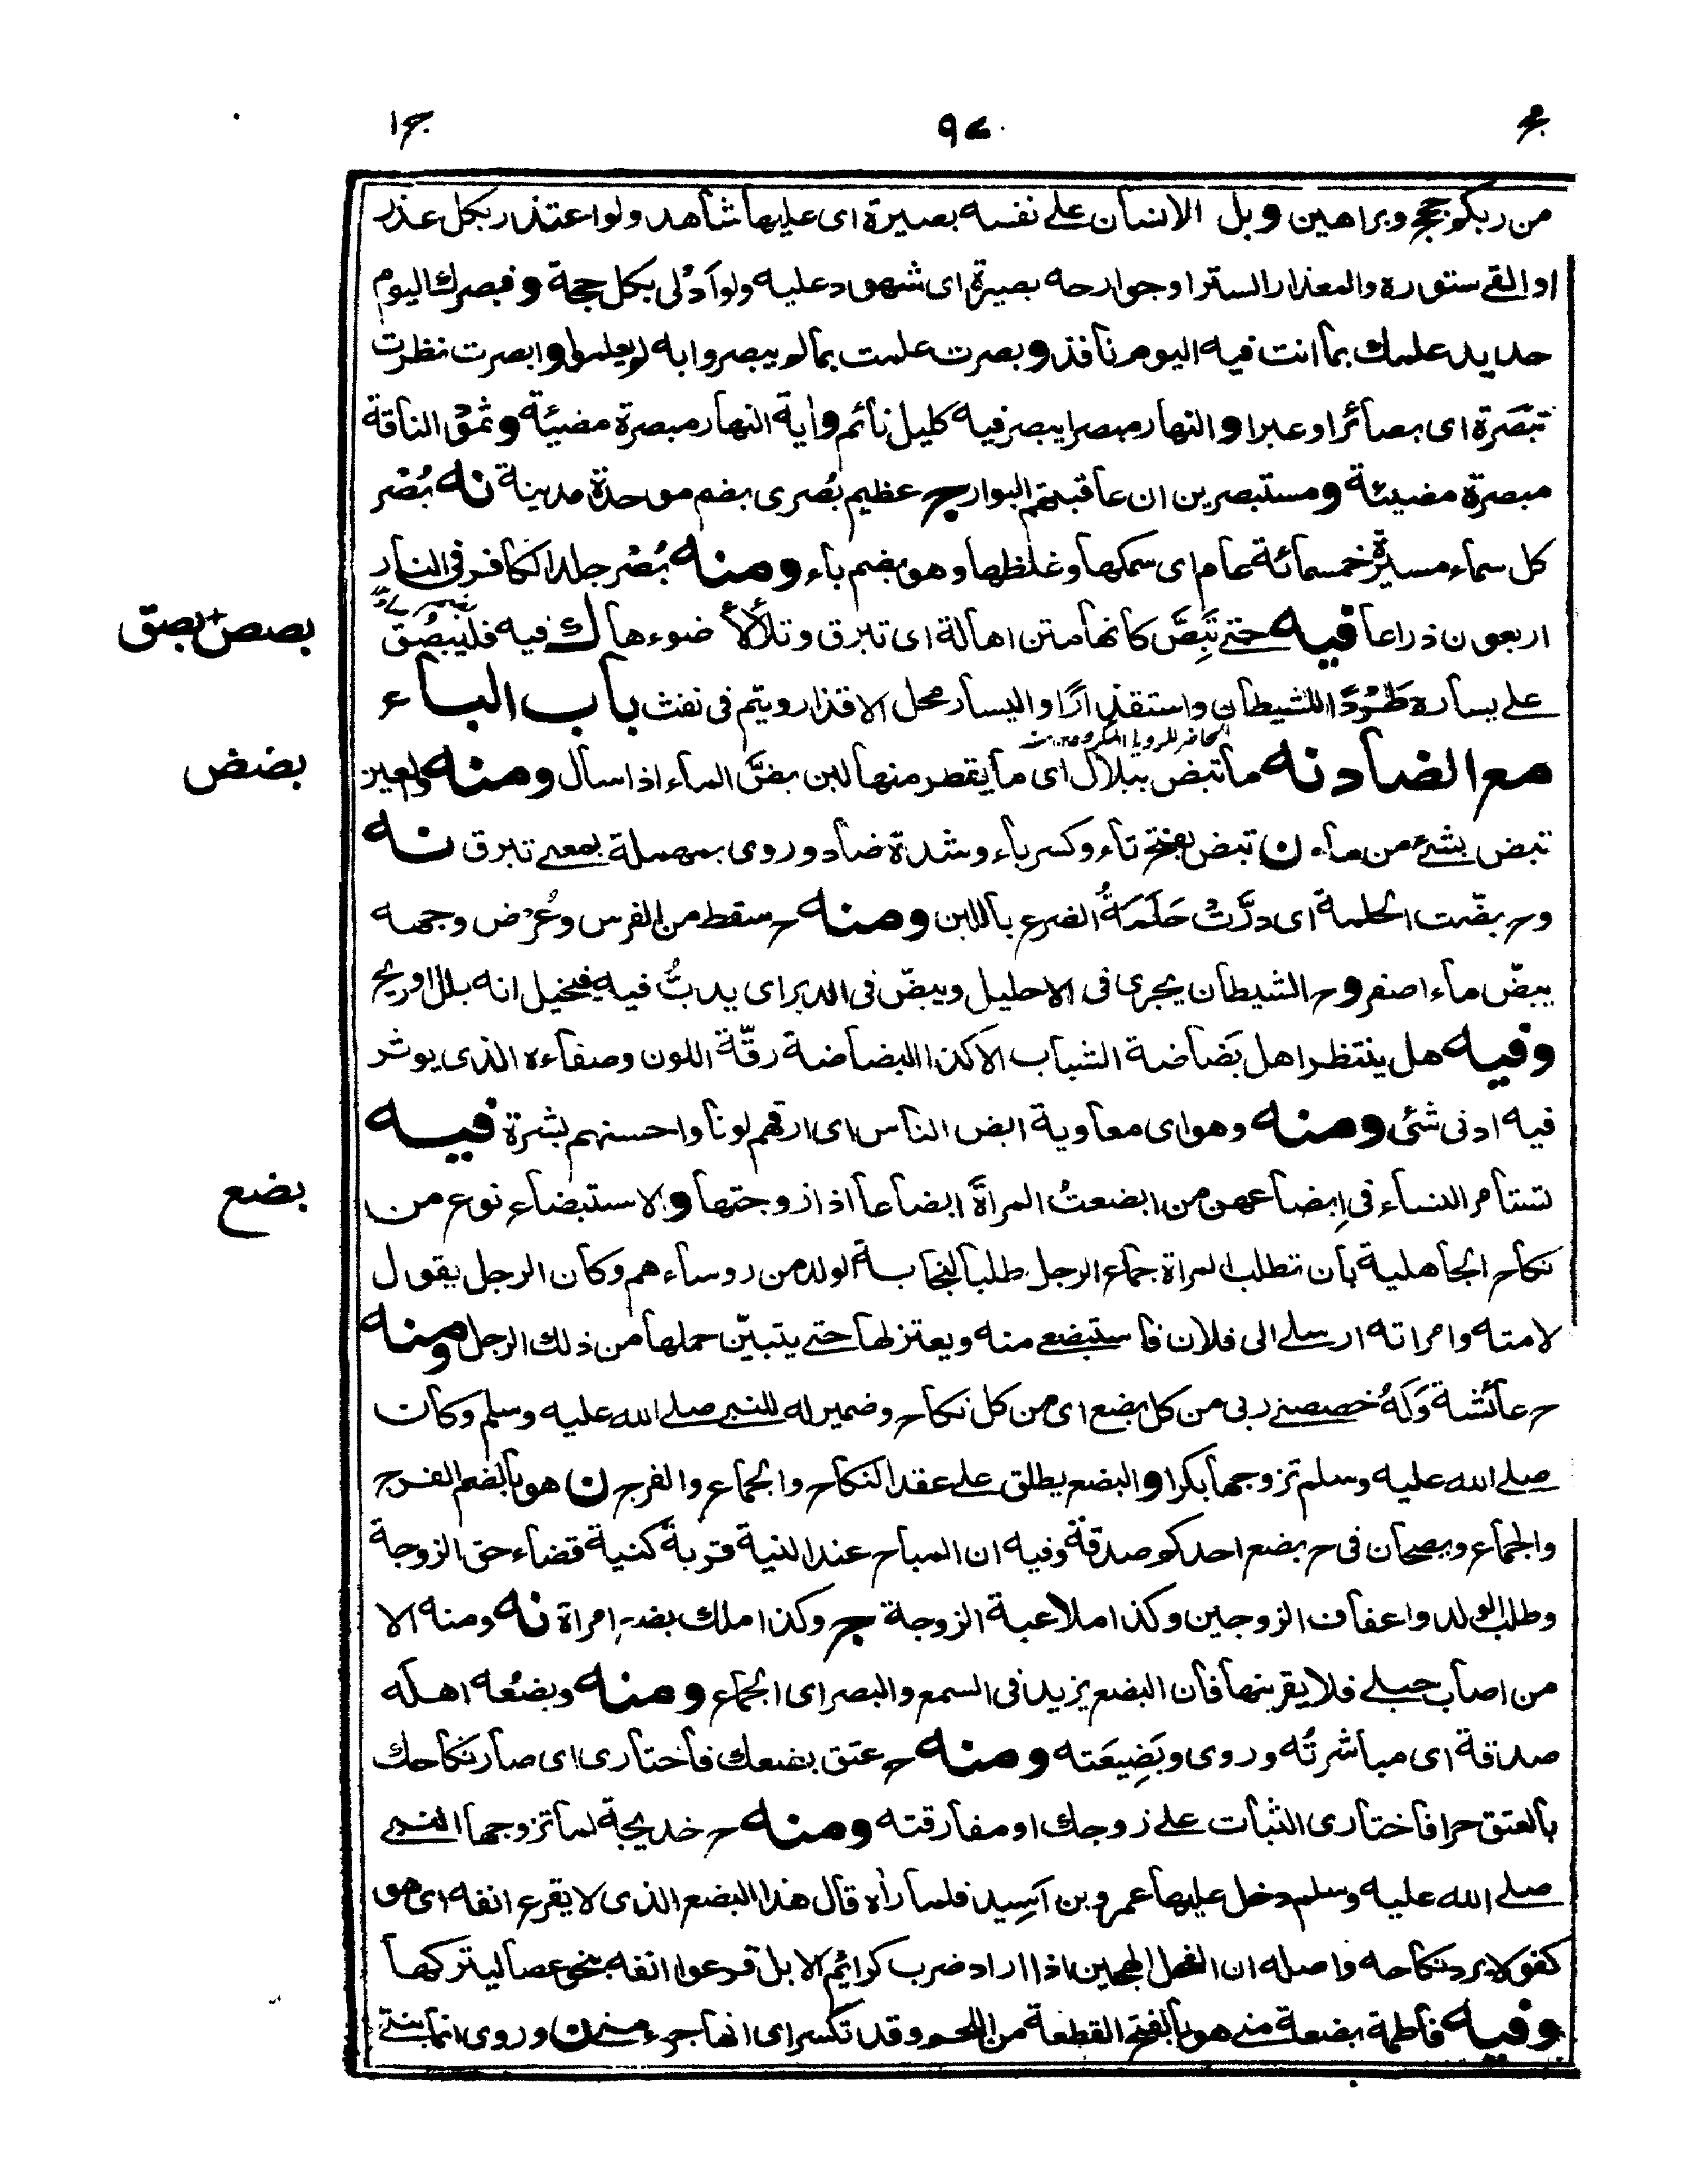 مج ٩٧ ج١
من ربكم حجج وبراهين و بل الانسان على نفسه بصيرة اى عليها شاهد ولو اعتذر بكل عذر
او القى ستوره والمعذار الستر او جوارحه بصيرة اى شهود عليه ولو ادلى بكل حجة و فبصرك اليوم
حديد علمك بما انت فيه اليوم نافذ و بصرت علمت بما لم يبصروا به لم يعلموا و ابصرت نظرت
تبصرة اى بصائرا وعبرا و النهار مبصرا يبصر فيه كليل نائم و اية النهار مبصرة مضيئة و ثمود الناقة
مبصرة مضيئة و مستبصرين ان عاقبتهم البوار ج عظيم بُصرى بضم موحدة مدينة نه بُصْر
كل سماء مسيرة خمسمائة عام اى سمكها وغلظها وهو بضم باء ومنه بُصْر جلد الكافر فى النار
اربعون ذراعا فيه حتى تَبِصَّ كانها متن اهالة اى تبرق وتلألأ ضوءها ك فيه فليبصُق
بصص + بصق
على يساره طَرْدًا للشيطان واستقذارًا واليسار محل الاقذار ويتم فى نفث باب الباء
الحاضر للرويا المكروهة
مع الضاد نه ما تبض ببلال اى ما يقطر منها لبن بضَّ الماء اذا سال ومنه والعين
بضض
تبض بشئ من ماء ن تبض بفتح تاء وكسر باء وشدة ضاد وروى بمهملة بمعنى تبرق نه
وح بضّت الحلمة اى درَّتْ حَلَمَةُ الضرع باللبن ومنه ح سقط من الفرس وعُرْض وجهه
يبضّ ماء اصفر وح الشيطان يجرى فى الاحليل ويبضّ فى الدبر اى يدبُّ فيه فيخيل انه بلل او ريح
وفيه هل ينتظر اهل بَضاضة الشباب الا كذا البضاضة رقّة اللون وصفاءه الذى يوثر
فيه ادنى شئ ومنه وهو اى معاوية ابض الناس اى ارقهم لونا واحسنهم بشرة فيه
تستامر النساء فى اِبضاعهن من ابضعتُ المراةَ ابضاعا اذا زوجتها و الاستبضاع نوع من
بضع
نكاح الجاهلية بان تطلب المراة جماع الرجل طلبا لنجابة الولد من روساءهم وكان الرجل يقول
لامته وامراته ارسلى الى فلان فاستبضعى منه ويعتزلها حتى يتبيّن حملها من ذلك الرجل ومنه
ح عائشة وَلَهُ خصصنى ربى من كل بضع اى من كل نكاح وضمير له للنبى صلى الله عليه وسلم وكان
صلى الله عليه وسلم تزوجها بكرا و البضع يطلق على عقد النكاح والجماع والفرج ن هو بالضم الفرج
والجماع ويصحان فى ح بضع احدكم صدقة وفيه ان المباح عند النية قربة كنية قضاء حق الزوجة
وطلب الولد واعفاف الزوجين وكذا ملاعبة الزوجة ج وكذا ملك بضع امراة نه ومنه الا
من اصاب حبلى فلا يقربنها فان البضع يزيد فى السمع والبصر اى الجماع ومنه وبضعُه اهله
صدقة اى مباشرتُه وروى وبَضِيعَته ومنه ح عتق بضعك فاختارى اى صار نكاحك
بالعتق حرا فاختارى الثبات على زوجك او مفارقته ومنه ح خديجة لما تزوجها النبى
صلى الله عليه وسلم دخل عليها عمرو بن اَسِيد فلما راٰه قال هذا البضع الذى لا يقرع انفه اى هو
كفو لا يرد نكاحه واصله ان الفحل الهجين اذا اراد ضرب كرائم الابل قرعوا انفه بنحو عصا ليتركها
وفيه فاطمة بضعة منى هو بالفتح القطعة من اللحم وقد تكسر اى انها جزء منى ن وروى انما ابنتى